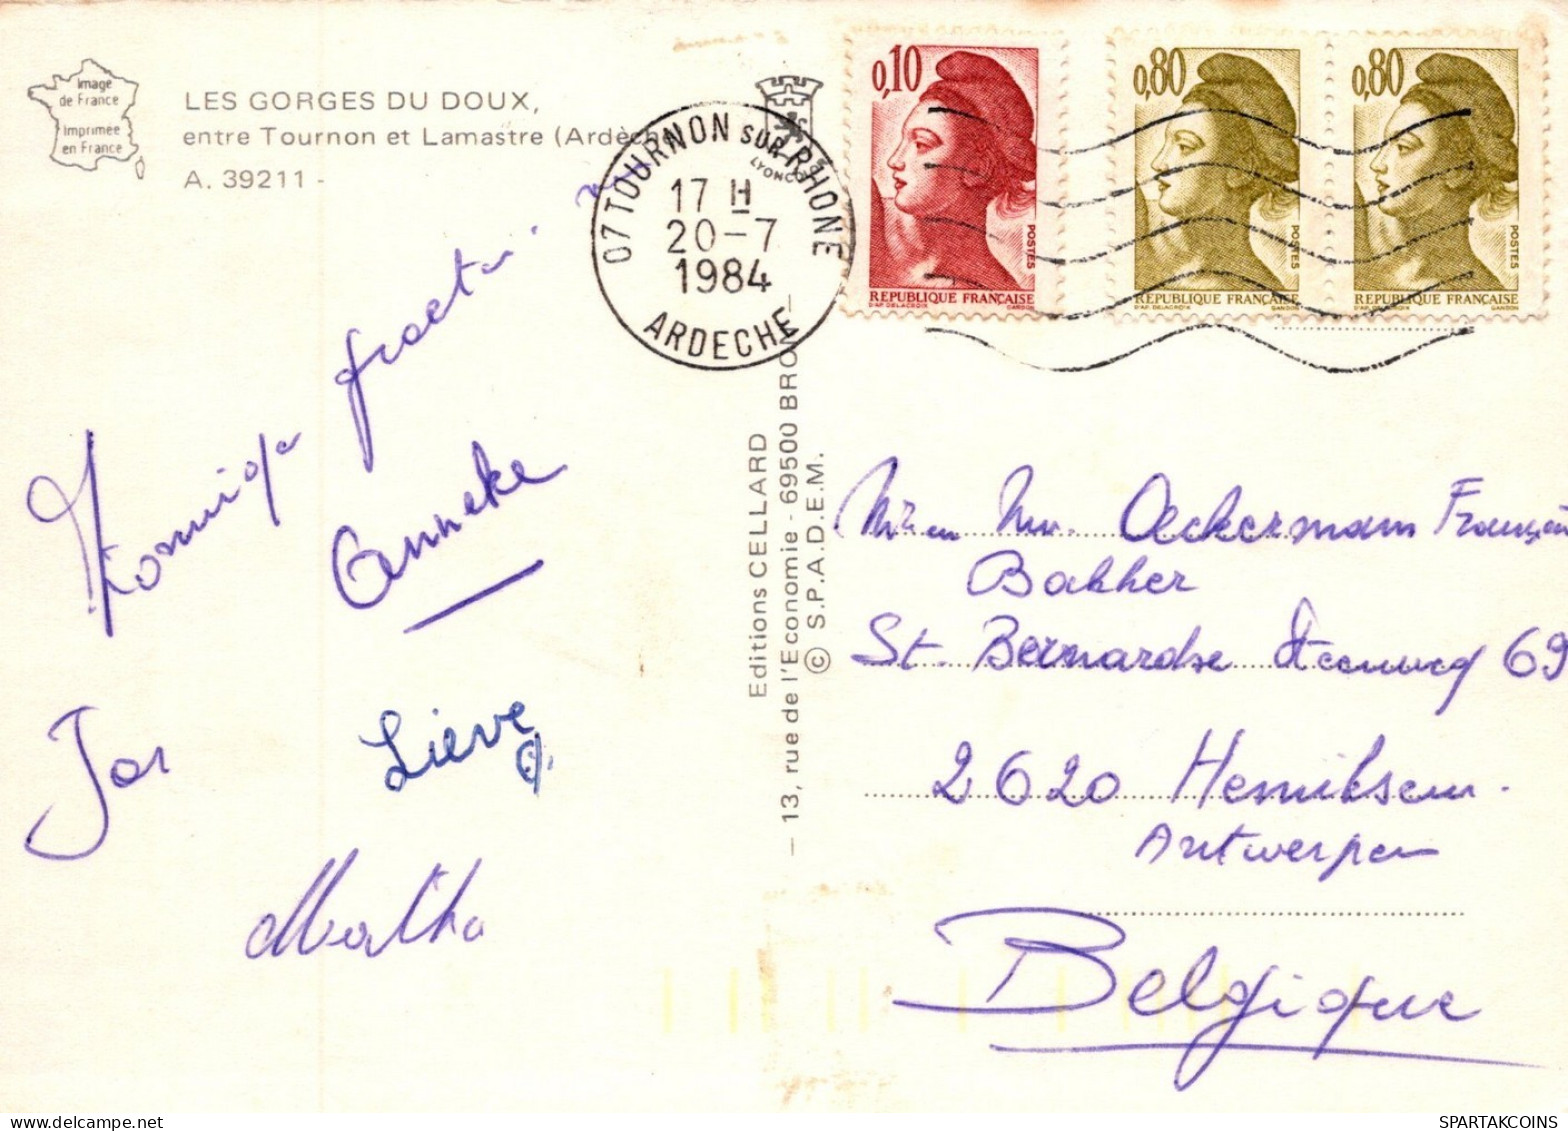 Image
de France
Imprimée
en France
LES GORGES DU DOUX,
entre Tournon et Lamastre (Ardèche
A. 39211 -
07 TOURNON SUR RHONE
17 H
20-7
1984
ARDECHE
LYON
0,10
POSTES
REPUBLIQUE FRANÇAISE
D'AP. DELACROIX GANDON
0,80
POSTES
REPUBLIQUE FRANÇAISE
D'AP. DELACROIX GANDON
0,80
POSTES
REPUBLIQUE FRANÇAISE
D'AP. DELACROIX GANDON
Editions CELLARD
— 13, rue de l'Economie - 69500 BRON —
© S.P.A.D.E.M.
Zonnige groeten
Anneke
Jos
Lieve
Martha
Ackermans
Bakker
St. Bernardse Steenweg 69
2620 Hemiksem.
Antwerpen
Belgique
SPARTAKCOINS